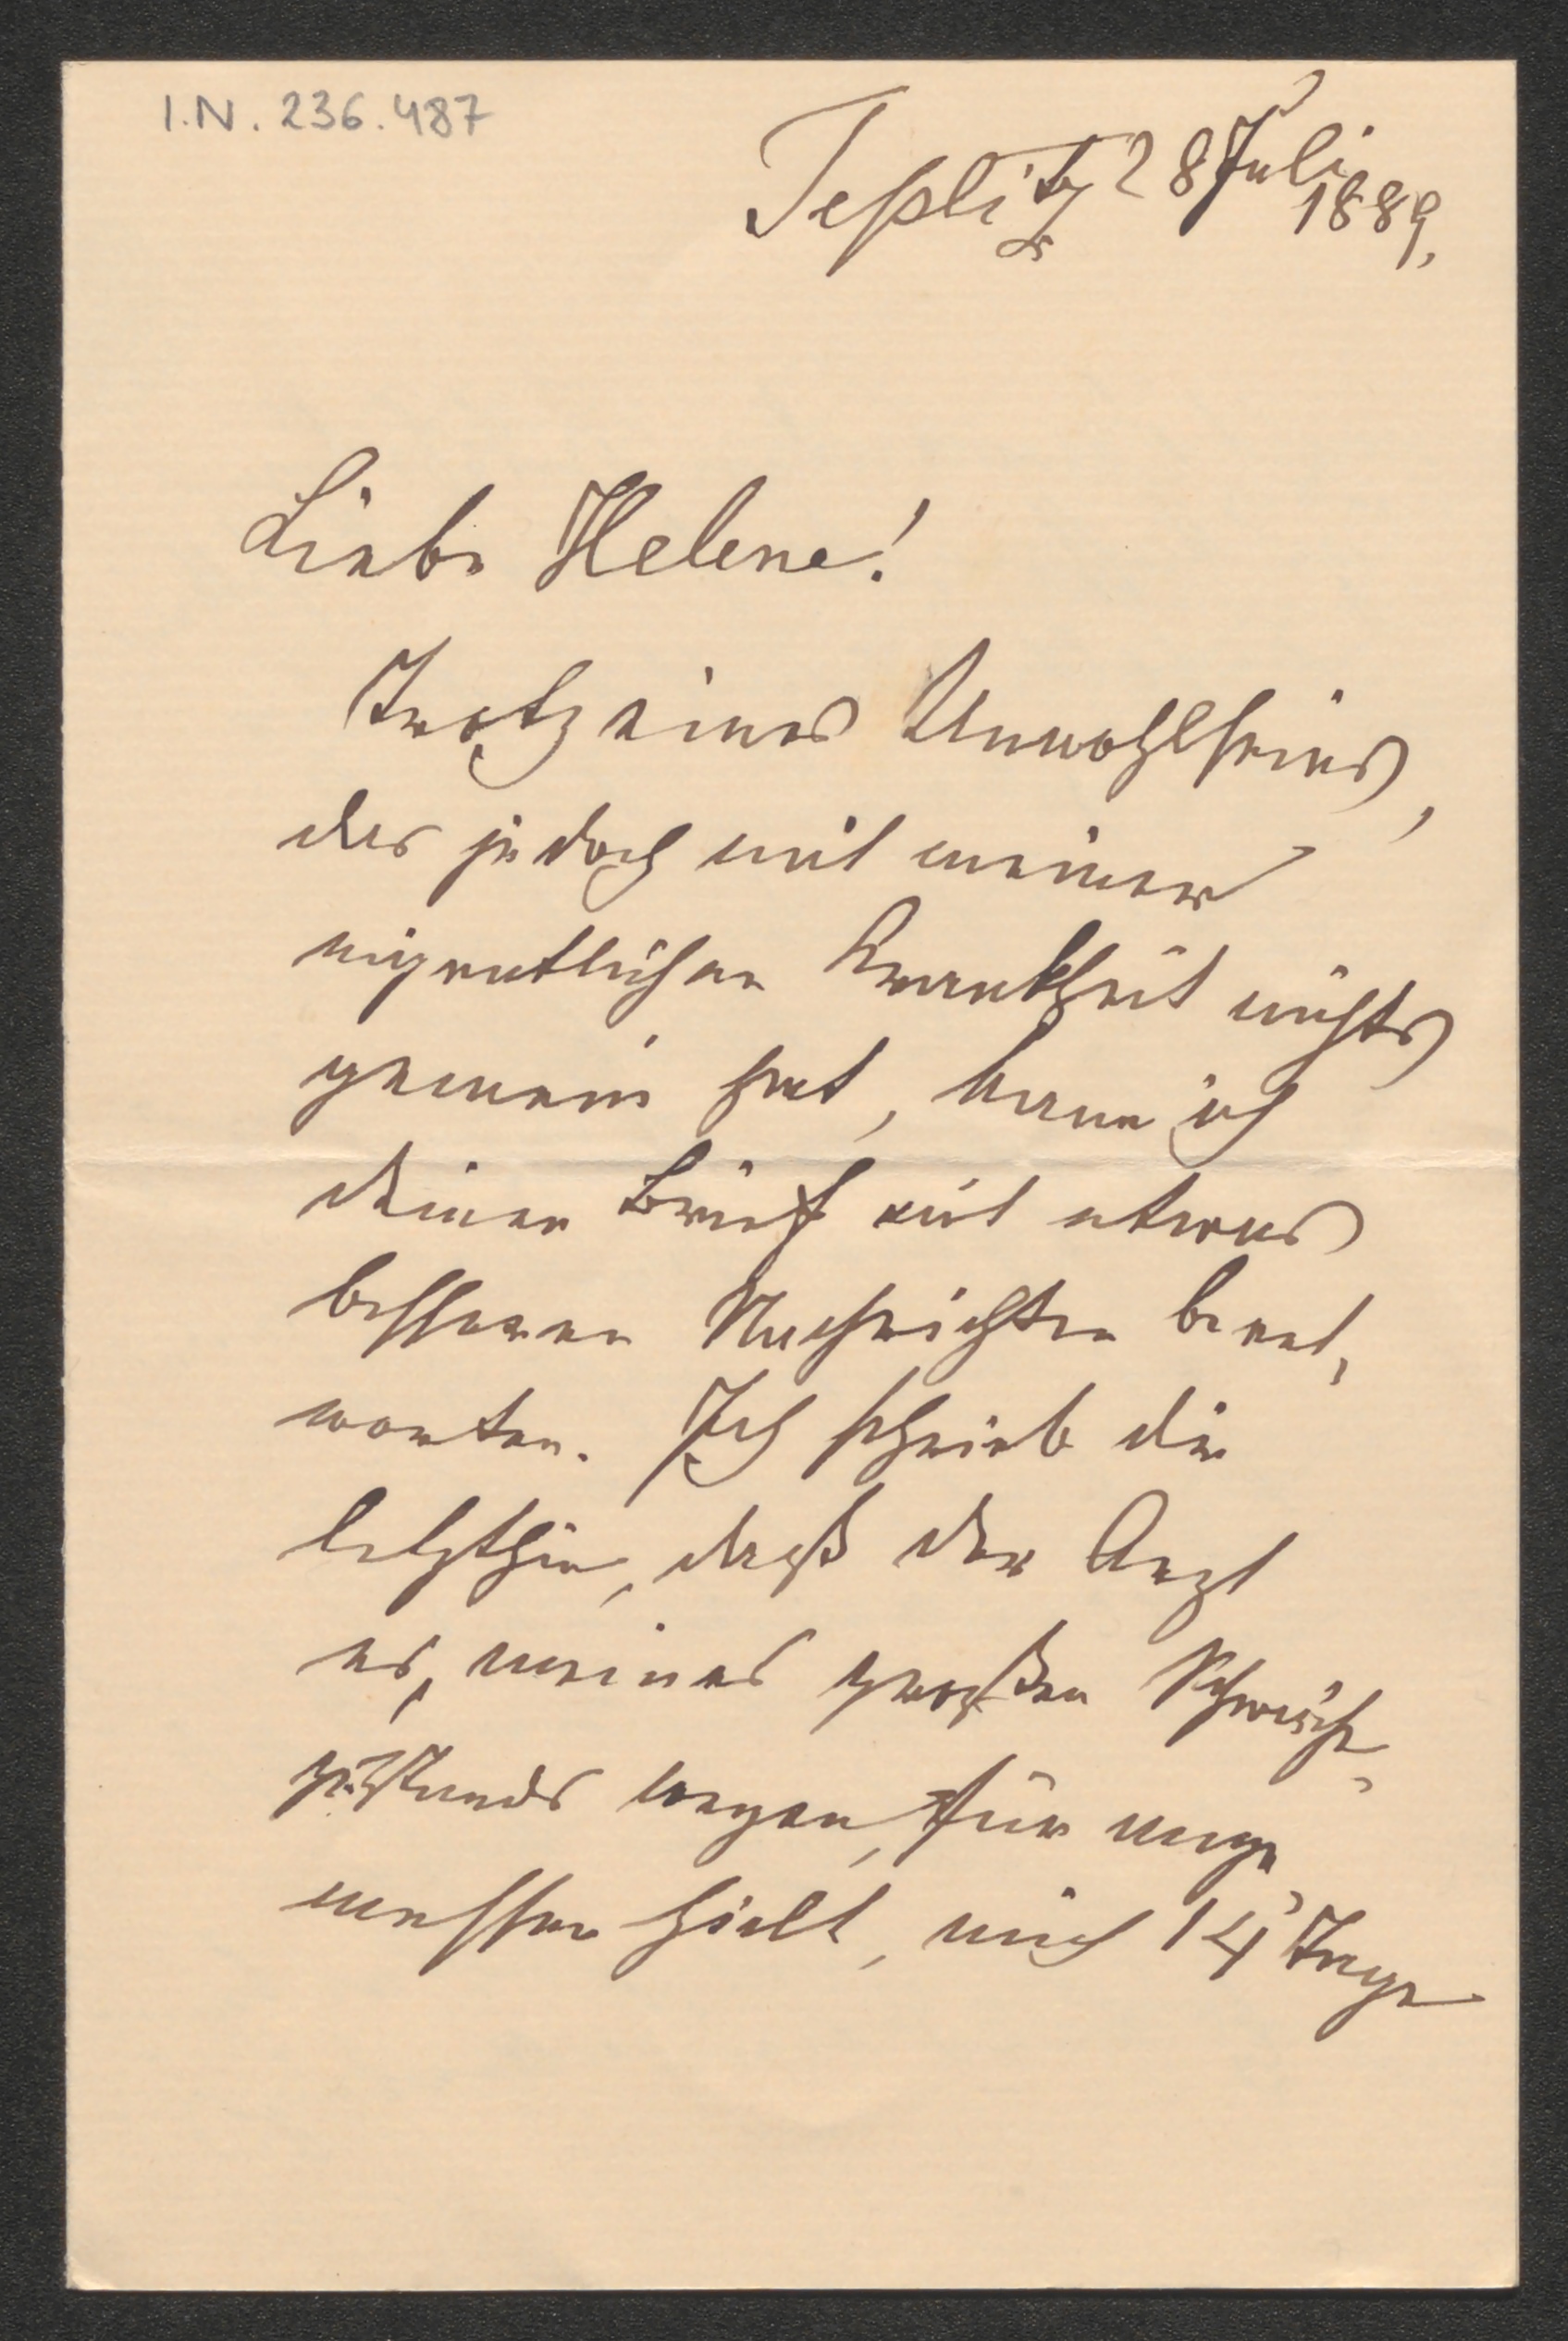 I.N. 236.487
Teplitz 28 Juli
1889.
Liebe Helene!
Trotz eines Unwohlseins,
das jedoch mit meiner
eigentlichen Krankheit nichts
gemein hat, kann ich
deinen Brief mit etwas
besseren Nachrichten beant,
worten. Ich schrieb dir
letzthin, daß der Arzt
es, meines großen Schwäche-
zustands wegen, für ange-
messen hielt, mich 14 Tage